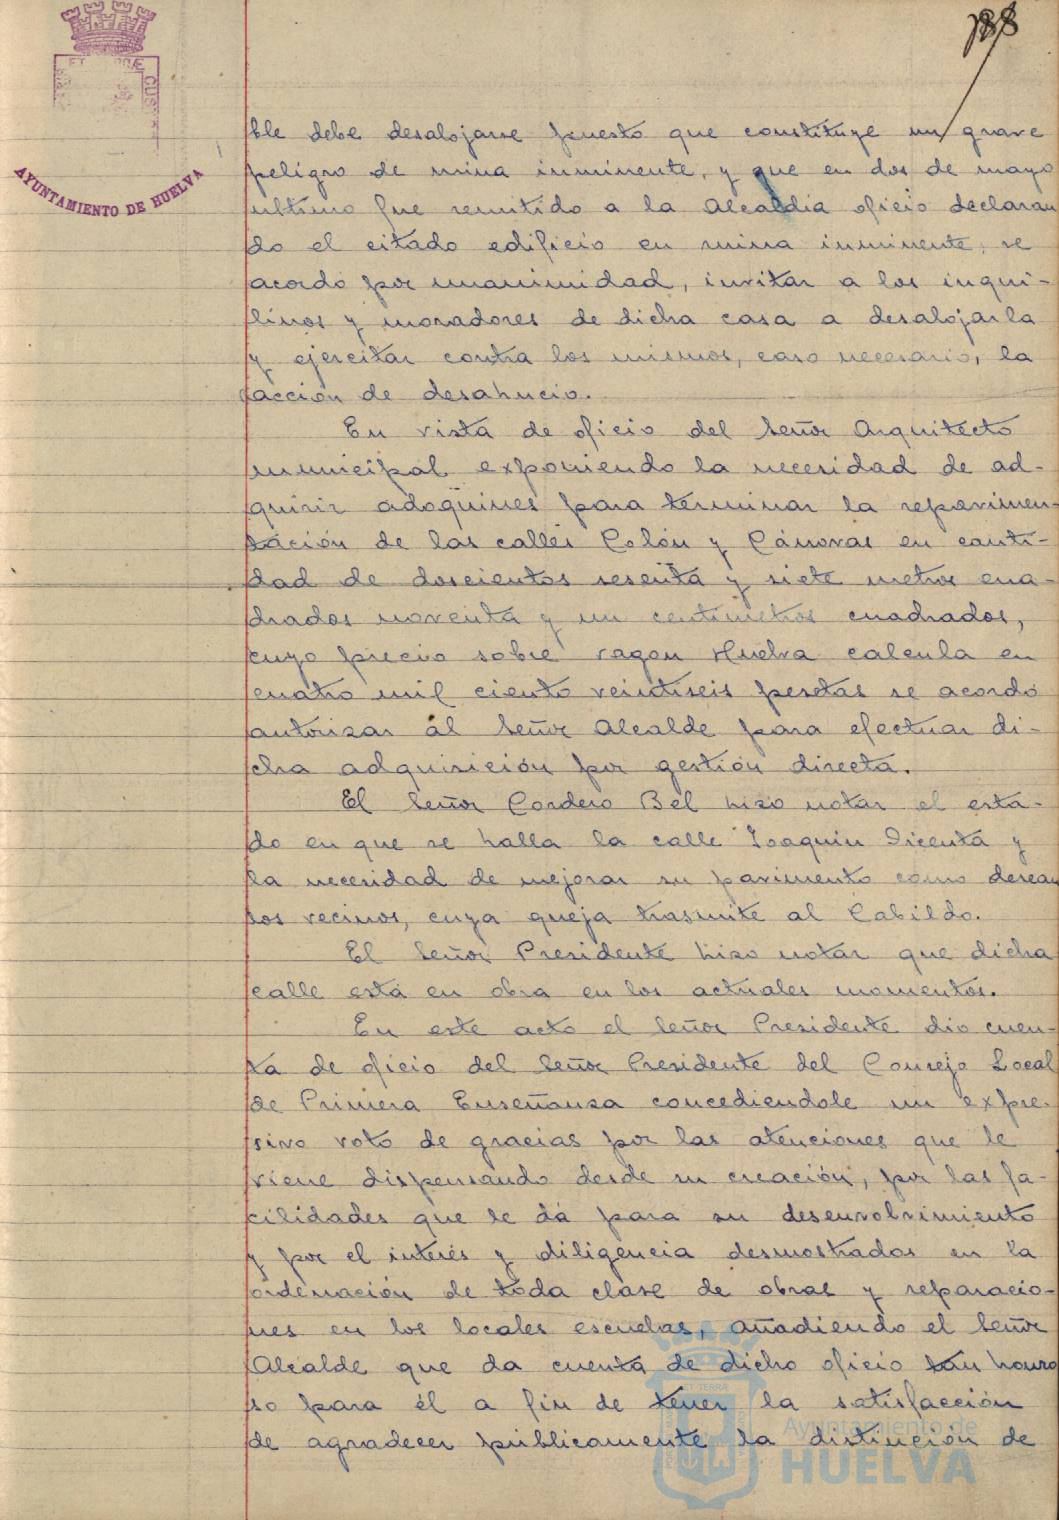 188
AYUNTAMIENTO DE HUELVA
ble debe desalojarse puesto que constituye un grave
peligro de ruina inminente, y que en dos de mayo
ultimo fue remitido a la Alcaldia oficio declaran
do el citado edificio en ruina inminente, se
acordó por unanimidad, invitar a los inqui-
linos y moradores de dicha casa a desalojarla
y ejercitar contra los mismos, caso necesario, la
acción de desahucio.
En vista de oficio del Señor Arquitecto
municipal exponiendo la necesidad de ad-
quirir adoquines para terminar la repavimen-
tación de las calles Colón y Cánovas en canti-
dad de doscientos sesenta y siete metros cua-
drados noventa y un centimetros cuadrados,
cuyo precio sobre vagon Huelva calcula en
cuatro mil ciento veintiseis pesetas se acordó
autorizar al Señor Alcalde para efectuar di-
cha adquisición por gestión directa.
El Señor Cordero Bel hizo notar el esta-
do en que se halla la calle Joaquin Dicenta y
la necesidad de mejorar su pavimento como desean
los vecinos, cuya queja trasmite al Cabildo.
El Señor Presidente hizo notar que dicha
calle está en obra en los actuales momentos.
En este acto el Señor Presidente dio cuen-
ta de oficio del Señor Presidente del Consejo Local
de Primera Enseñanza concediendole un expre-
sivo voto de gracias por las atenciones que le
viene dispensando desde su creación, por las fa-
cilidades que le dá para su desenvolvimiento
y por el interés y diligencia desmostrados en la
ordenación de toda clase de obras y reparacio-
nes en los locales escuelas, añadiendo el Señor
Alcalde que da cuenta de dicho oficio tan honro
so para él a fin de tener la satisfacción
de agradecer públicamente la distinción de
Ayuntamiento de
HUELVA